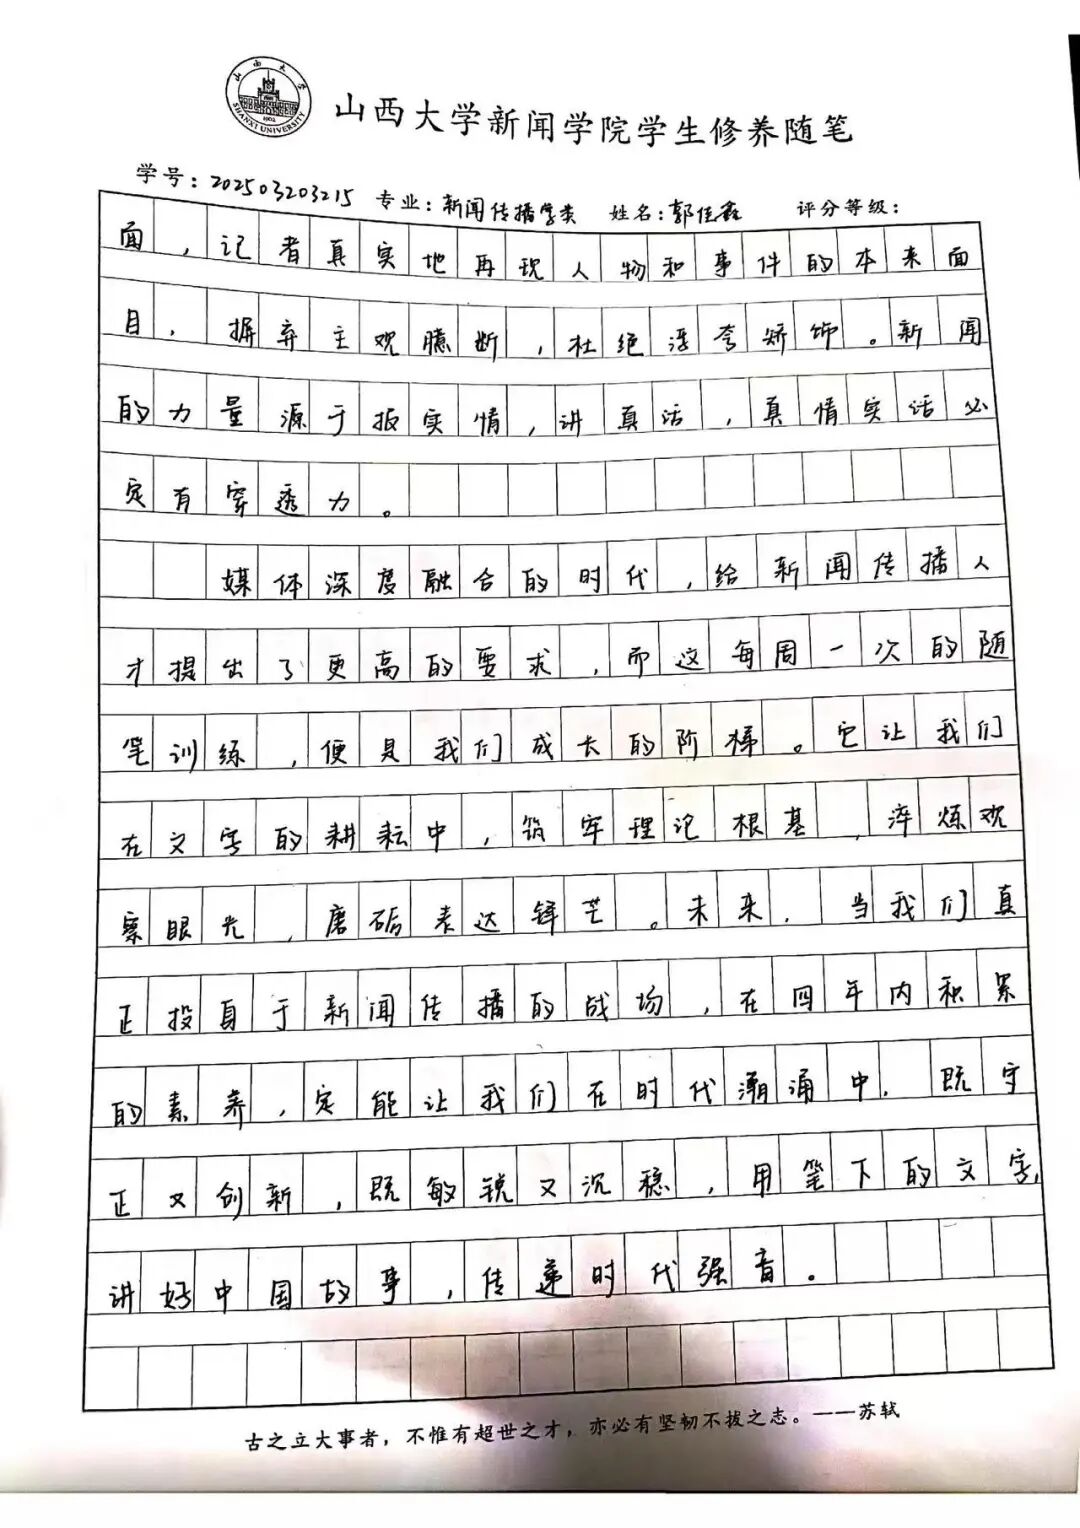 山西大学
SHANXI UNIVERSITY
1902
山西大学新闻学院学生修养随笔
学号：202503203215 专业：新闻传播学类 姓名：郭佳鑫 评分等级：
面，记者真实地再现人物和事件的本来面
目，摒弃主观臆断，杜绝浮夸矫饰。新闻
的力量源于报实情，讲真话，真情实话必
定有穿透力。
媒体深度融合的时代，给新闻传播人
才提出了更高的要求，而这每周一次的随
笔训练，便是我们成长的阶梯。它让我们
在文字的耕耘中，筑牢理论根基，淬炼观
察眼光，磨砺表达锋芒。未来，当我们真
正投身于新闻传播的战场，在四年内积累
的素养，定能让我们在时代潮涌中，既守
正又创新，既敏锐又沉稳，用笔下的文字，
讲好中国故事，传递时代强音。
古之立大事者，不惟有超世之才，亦必有坚韧不拔之志。——苏轼